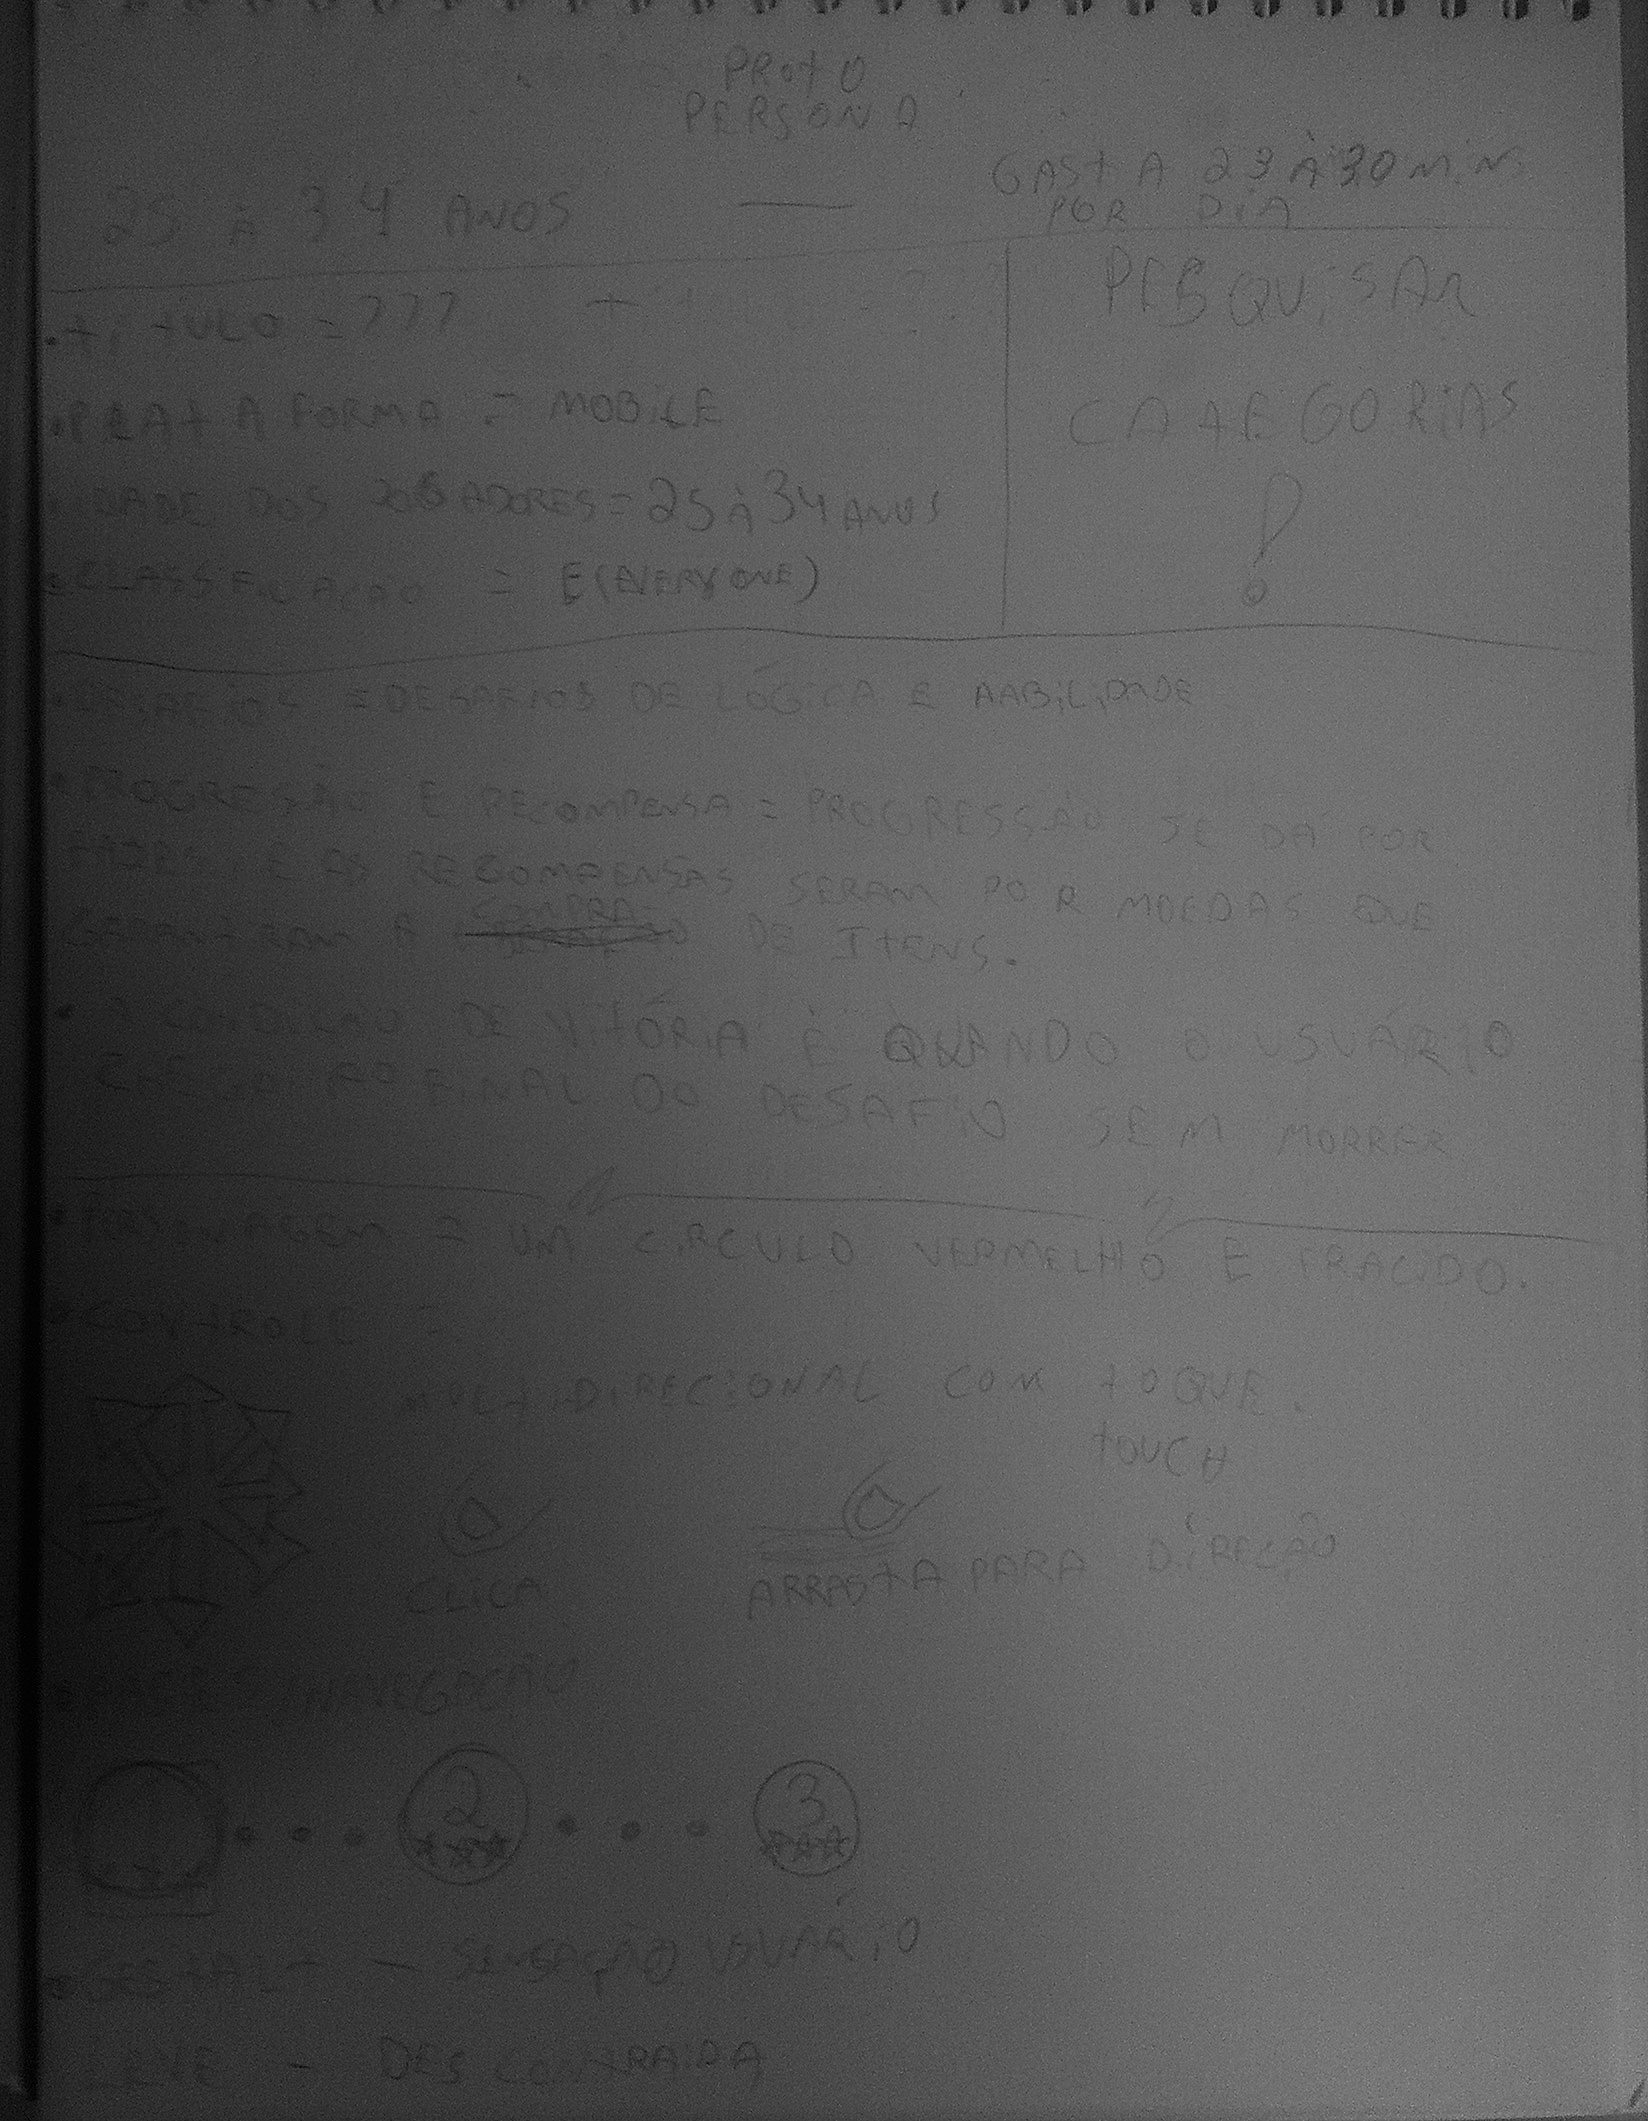 PROTO
PERSONA
25 À 34 ANOS
GASTA 23 À 30 MIN
POR DIA
TÍTULO = ???
PLATAFORMA = MOBILE
IDADE DOS JOGADORES = 25 À 34 ANOS
CLASSIFICAÇÃO = E (EVERYONE)
PESQUISAR
CATEGORIAS
!
DESAFIOS = DESAFIOS DE LÓGICA E HABILIDADE
PROGRESSÃO E RECOMPENSA = PROGRESSÃO SE DÁ POR
FASES E AS RECOMPENSAS SERAM POR MOEDAS QUE
GARANTIRAM A COMPRA DE ITENS.
CONDIÇÃO DE VITÓRIA É QUANDO O USUÁRIO
CHEGA AO FINAL DO DESAFIO SEM MORRER
PERSONAGEM = UM CIRCULO VERMELHO E
CONTROLE =
MULTIDIRECIONAL COM TOQUE.
TOUCH
CLICA
ARRASTA PARA DIREÇÃO
NAVEGAÇÃO
2
3
GESTALT - SENSAÇÃO USUÁRIO
LEVE - DESCONTRAIDA